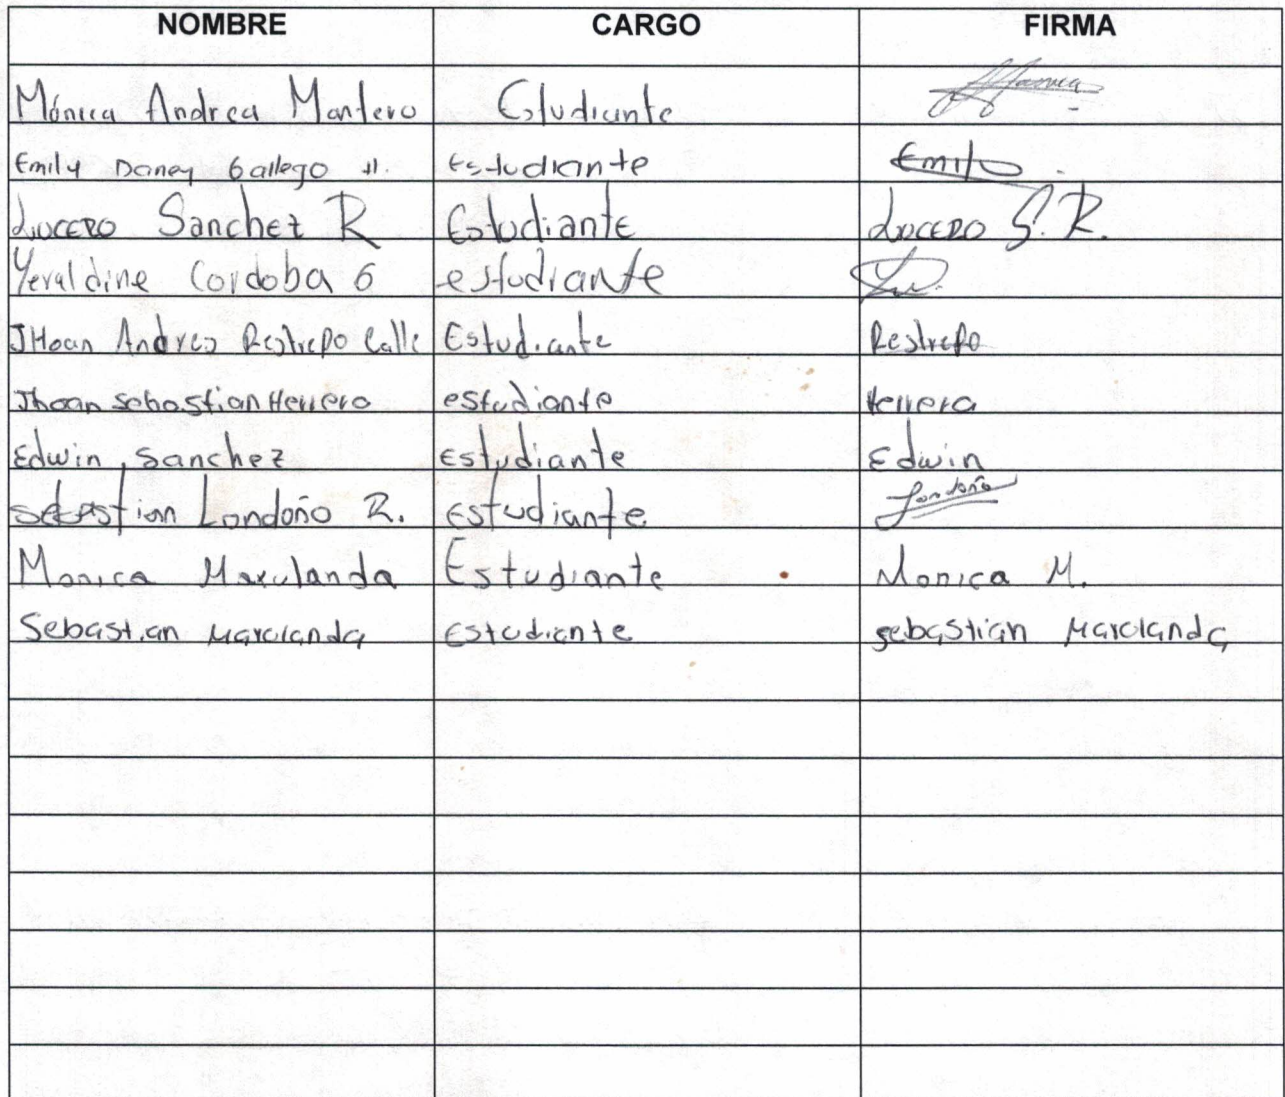 NOMBRE CARGO FIRMA
Mónica Andrea Montero Estudiante Monica
Emily Daney Gallego H. Estudiante Emily
Lucero Sanchez R Estudiante Lucero S. R.
Yeraldine Cordoba G estudiante
JHoan Andres Restrepo Calle Estudiante Restrepo
Jhoan Sebastian Herrera estudiante Herrera
Edwin Sanchez Estudiante Edwin
Sebastian Londoño R. Estudiante Londoño
Monica Marulanda Estudiante Monica M.
Sebastian Marulanda Estudiante Sebastian Marulanda